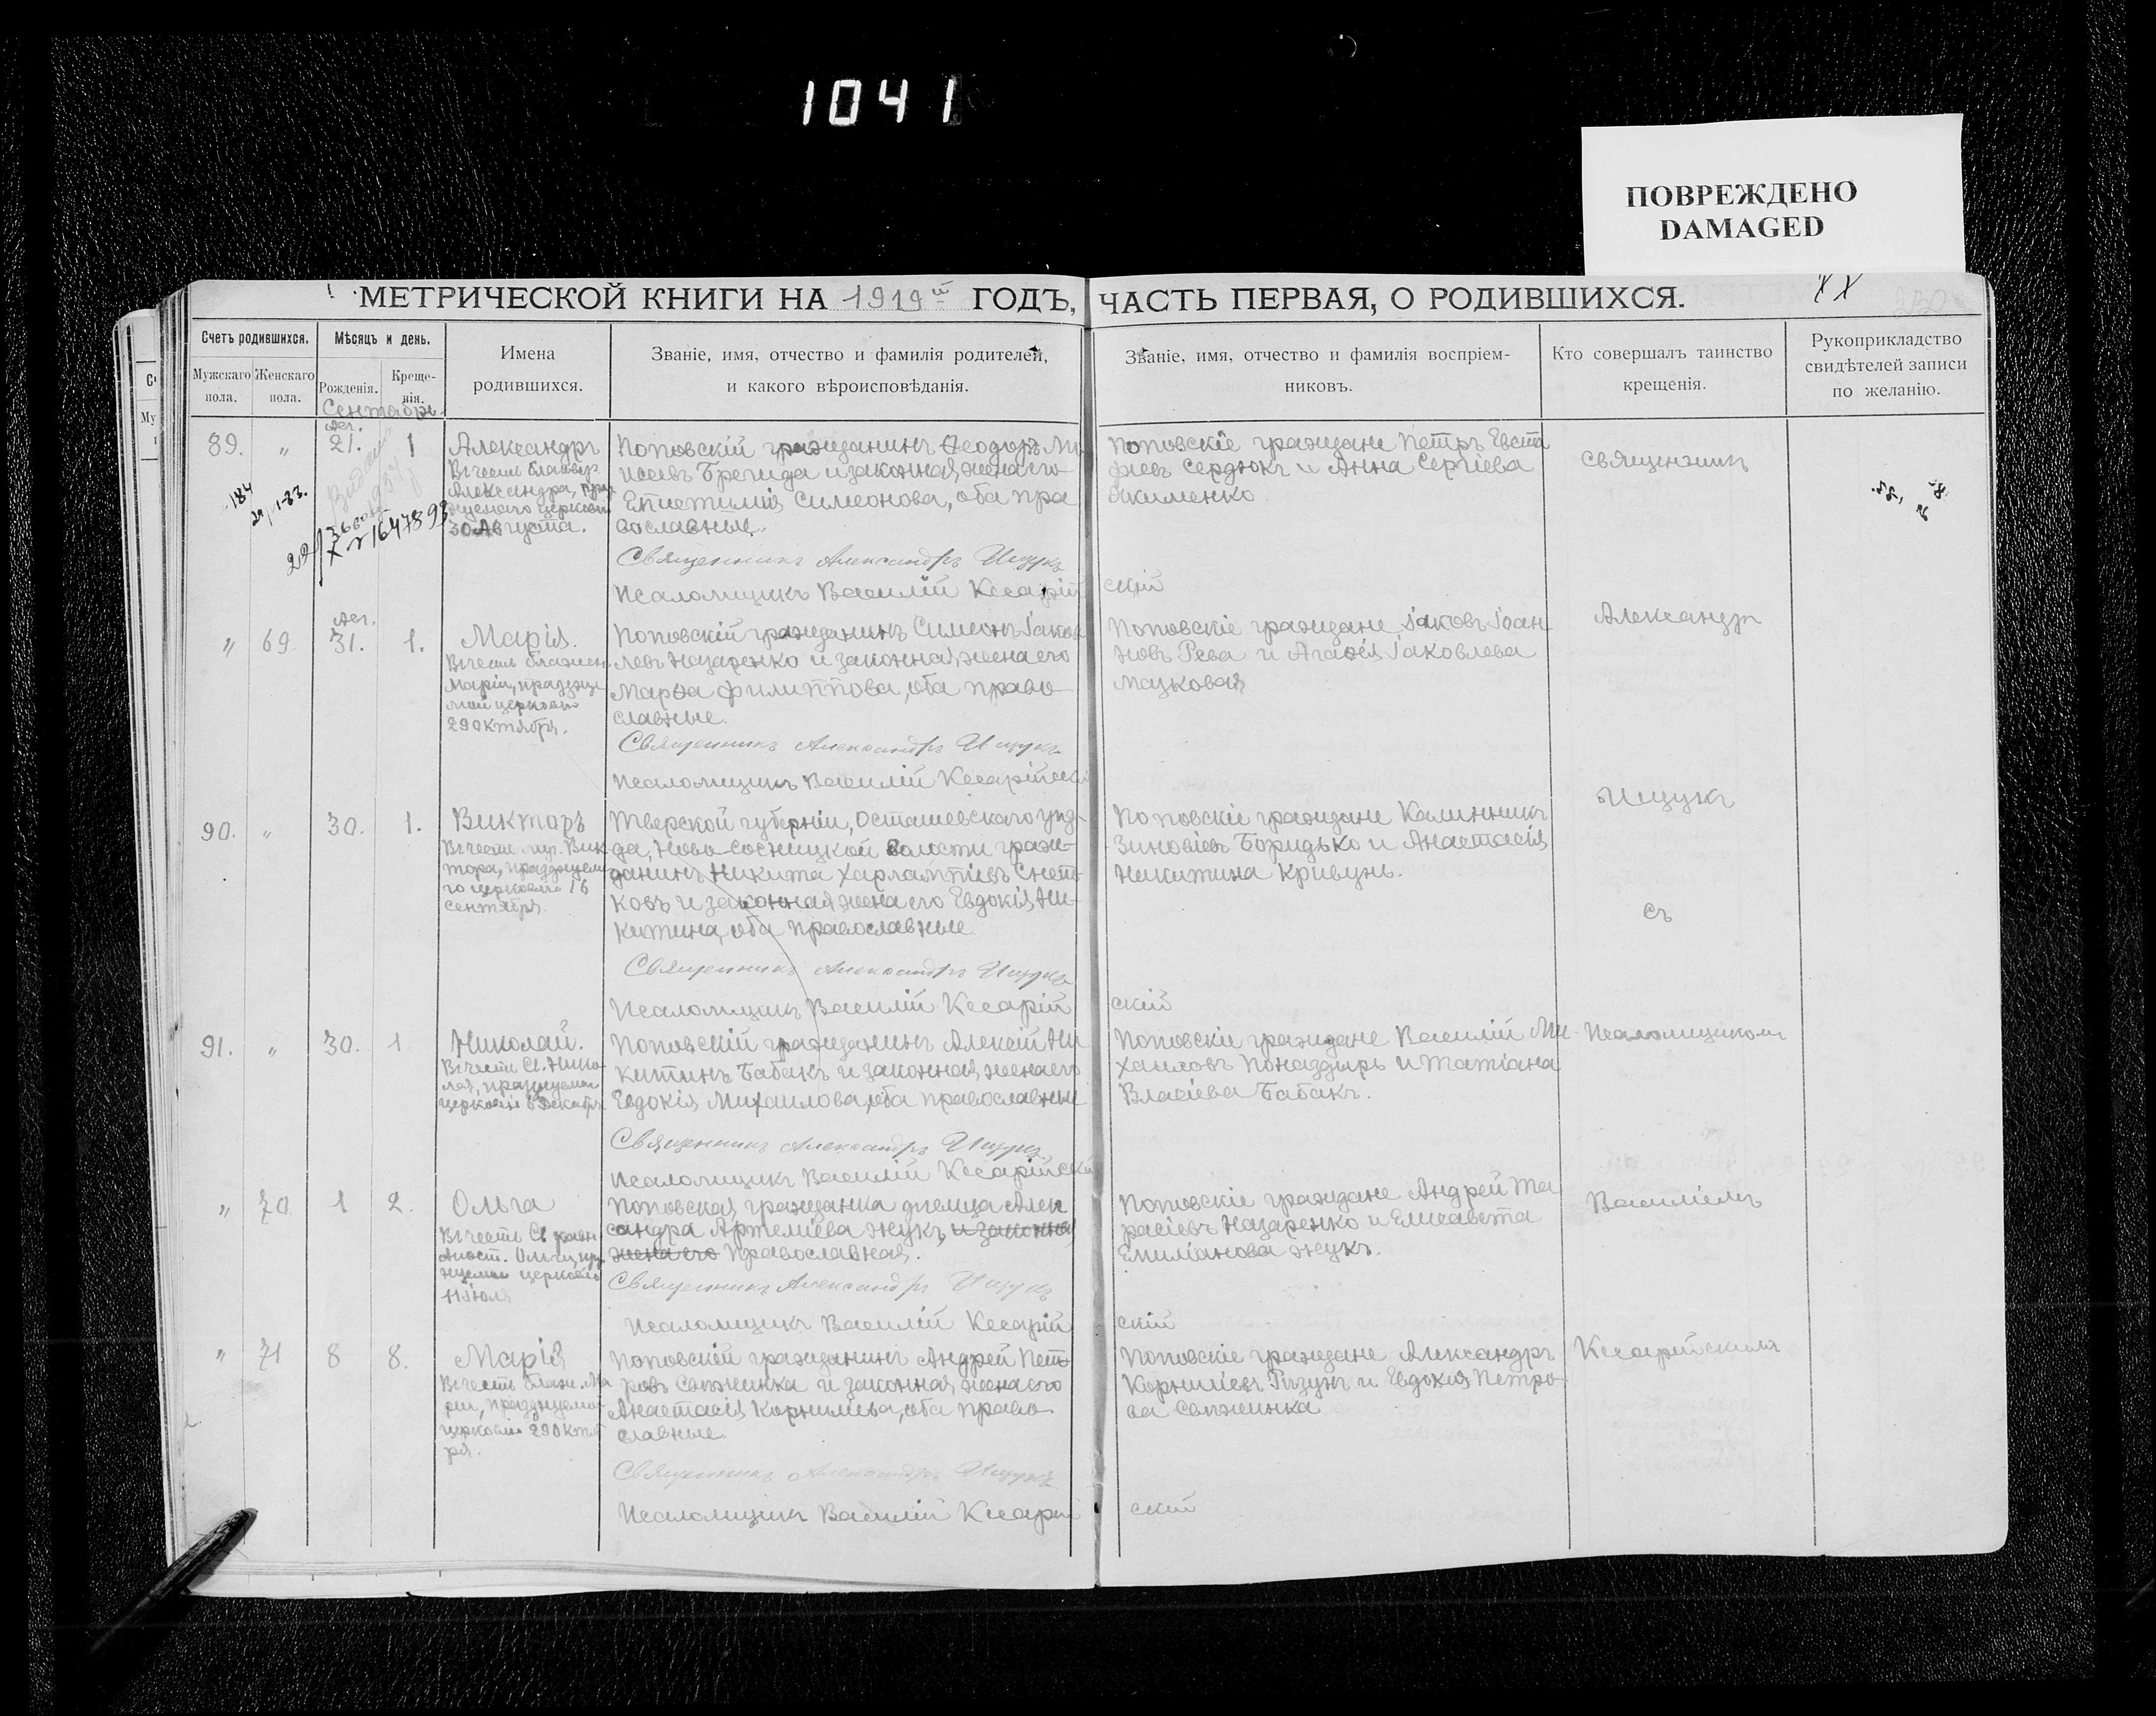 1041
ПОВРЕЖДЕНО
DAMAGED
МЕТРИЧЕСКОЙ КНИГИ НА 1919й ГОДЪ, ЧАСТЬ ПЕРВАЯ, О РОДИВШИХСЯ.
Счетъ родившихся.
Мужскаго пола.
Женскаго пола.
Мѣсяцъ и день.
Рожденія.
Креще-
нія.
Имена
родившихся.
Званіе, имя, отчество и фамилія родителей,
и какого вѣроисповѣданія.
Званіе, имя, отчество и фамилія воспріем-
никовъ.
Кто совершалъ таинство
крещенія.
Рукоприкладство
свидѣтелей записи
по желанію.
Сентябрь
89. " 21. 1
Александръ
Въ честь благовѣр.
Александра,
церковію
30 Августа.
Поповскій гражданинъ Ѳеодоръ Мо
исеевъ Брегида и законная жена его
Епистимія Симеонова, оба пра
вославные.
Священникъ Александръ Ищукъ
Псаломщикъ Василій Кесарій
скій
Поповскіе граждане Петръ Евста
фіевъ Сердюкъ и Анна Сергіева
Якименко
Священникъ
" 69 31. 1.
Марія.
Въ честь блажен.
Маріи, праздну
мой церковью
29 Октября.
Поповскій гражданинъ Симеонъ Іаков
левъ Назаренко и законная жена его
Марѳа Филиппова, оба право-
славные.
Священникъ Александръ Ищукъ
Псаломщикъ Василій Кесарійскі
Поповскіе граждане Іаковъ Іоан-
новъ Рева и Агаѳія Іаковлева
Мазковая
Александръ
90. " 30. 1.
Викторъ
Въ честь муч. Вик
тора, празднуем
го церковію 16
сентября.
Тверской губерніи, Осташевскаго уѣз-
да, Ново-Сосницкой волости граж-
данинъ Никита Харлампіевъ Снет-
ковъ и законная жена его Евдокія Ни-
китина, оба православные
Священникъ Александръ Ищукъ
Псаломщикъ Василій Кесарій
скій
Поповскіе граждане Калинникъ
Зиновіевъ Боридько и Анастасія
Никитина Кривунь.
Ищукъ
съ
91. " 30. 1
Николай.
Въ честь Св. Нико-
лая, празднуемаго
церковію 6 Декабря
Поповскій гражданинъ Алексій Ни
китинъ Бабакъ и законная жена его
Евдокія Михаилова, оба православные
Священникъ Александръ Ищукъ
Псаломщикъ Василій Кесарійскій
Поповскіе граждане Василій Ми-
хаиловъ Поназдырь и Татіана
Власіева Бабакъ.
Псаломщикомъ
" 70 1 2.
Ольга
Въ честь Св. равн
Апост. Ольги,
церковію
11 Іюля
Поповская гражданка дѣвица Алек
сандра Артеміева Жукъ, и законная
жена его православная.
Священникъ Александръ Ищукъ
Псаломщикъ Василій Кесарій
скій
Поповскіе граждане Андрей Та
расіевъ Назаренко и Елисавета
Емиліанова Жукъ.
Василіемъ
" 71 8 8.
Марія
Въ честь блаж. Ма
ріи, празднуемой
церковію 29 Октя
ря.
Поповскій гражданинъ Андрей Пет-
ровъ Свѣженка и законная жена его
Анастасія Корниліева, оба право-
славные
Священникъ Александръ Ищукъ
Псаломщикъ Василій Кесарій
скій
Поповскіе граждане Александръ
Корниліевъ Гизунъ и Евдокія Петро-
ва Свѣженка
Кесарійскимъ